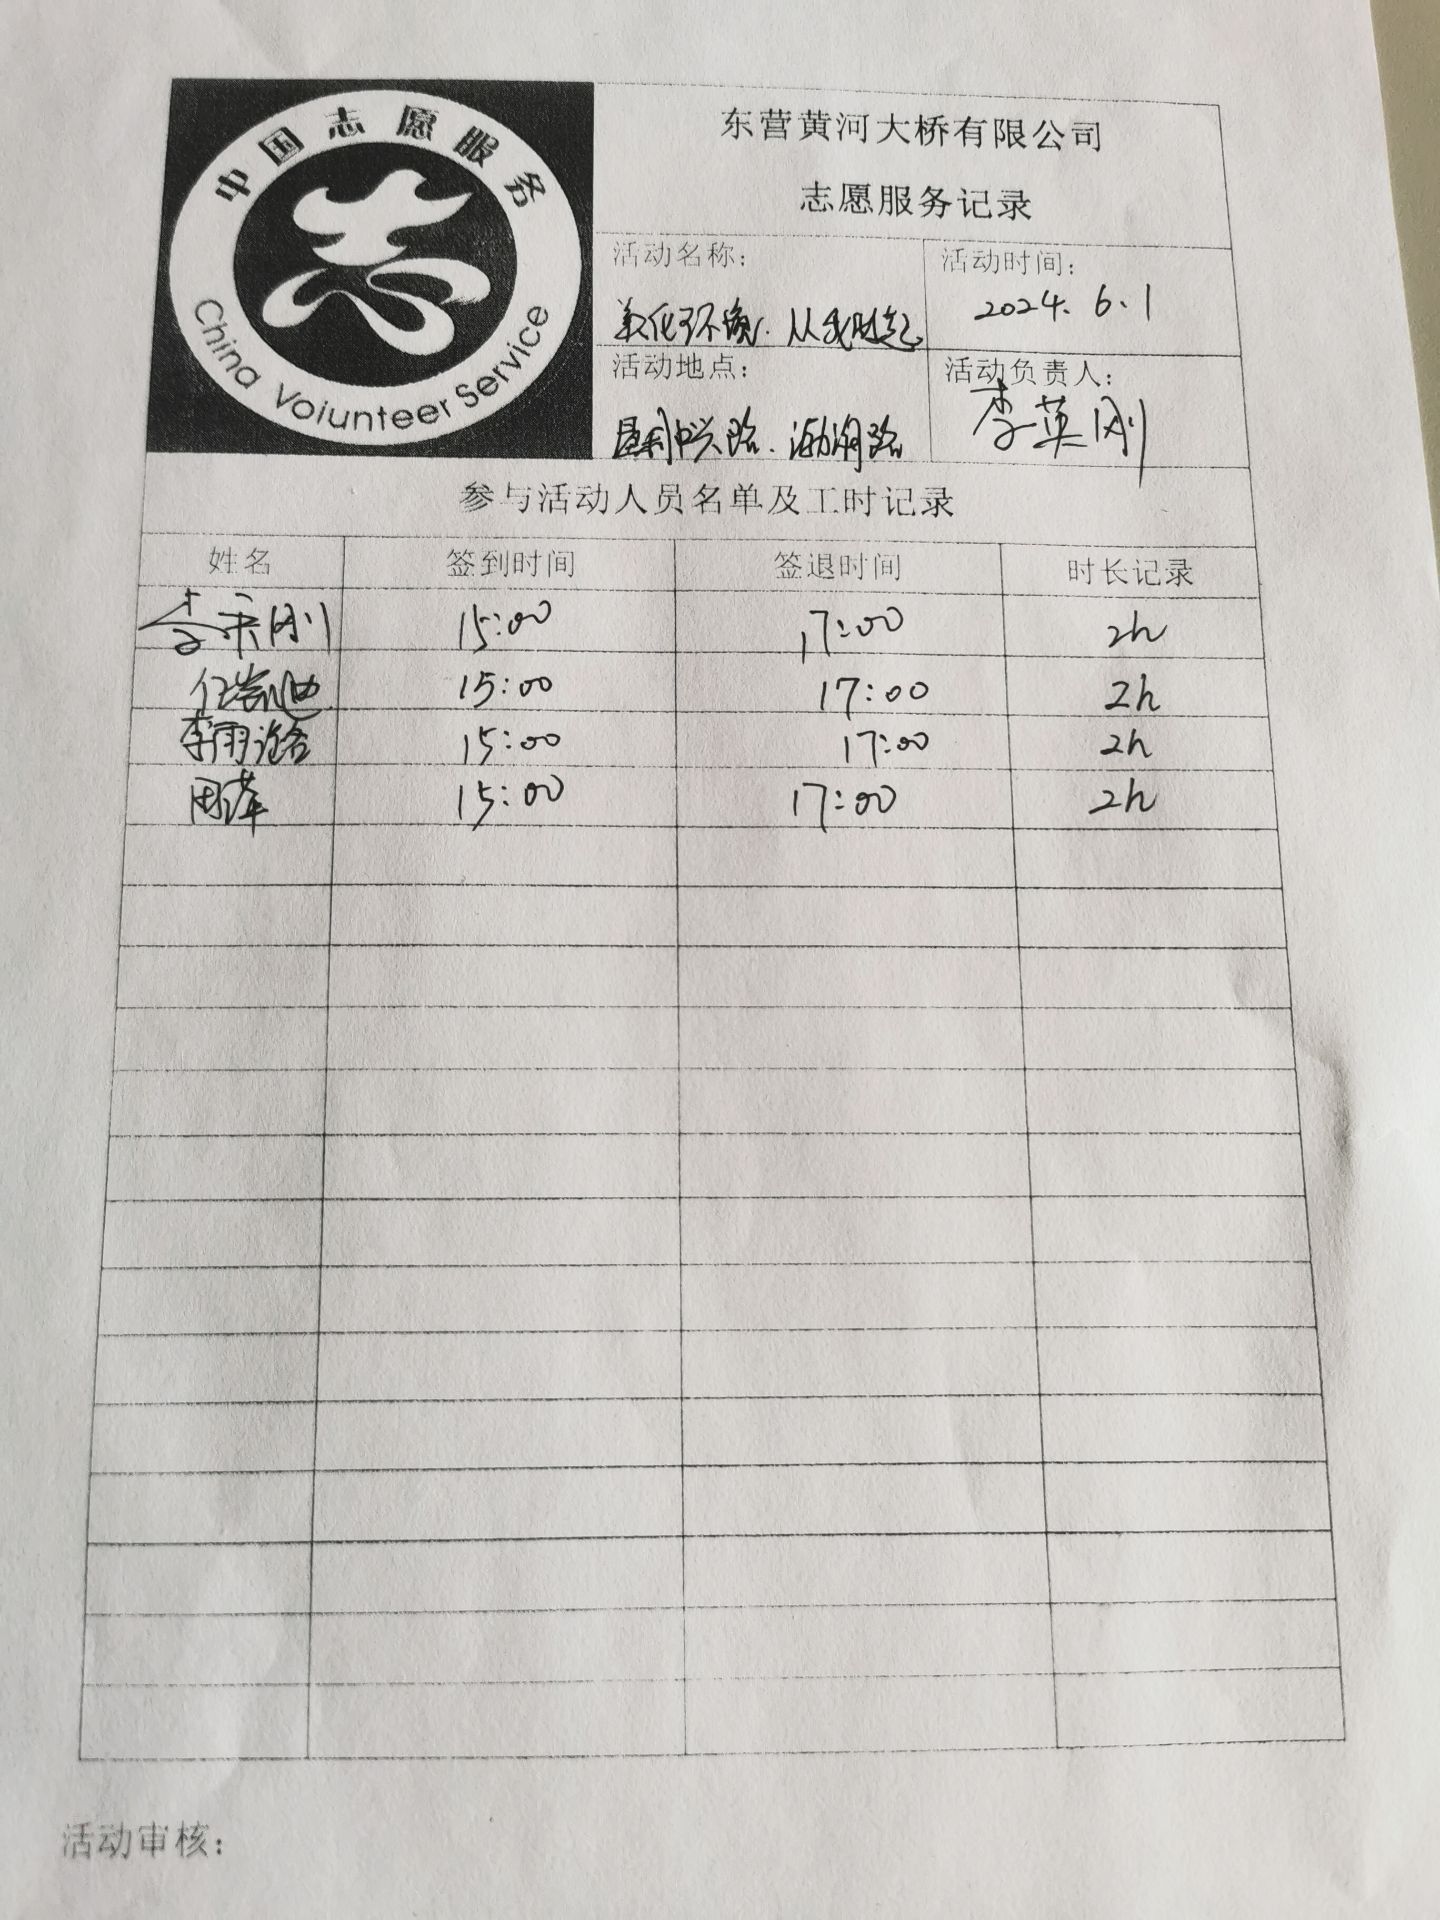 中国志愿服务
China Voiunteer Service
东营黄河大桥有限公司
志愿服务记录
活动名称：
活动时间：
美化环境，从我做起
2024.6.1
活动地点：
活动负责人：
垦利中兴路、渤海路
李英刚
参与活动人员名单及工时记录
姓名 签到时间 签退时间 时长记录
李英刚 15:00 17:00 2h
15:00 17:00 2h
李雨 15:00 17:00 2h
15:00 17:00 2h
活动审核：